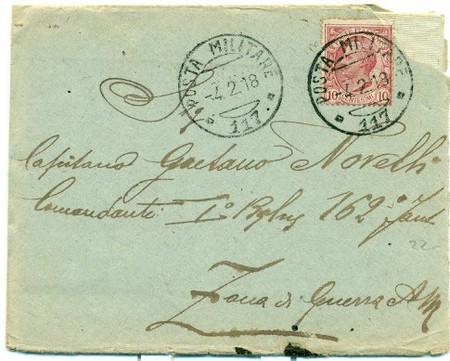 POSTA MILITARE
-4.2.18
117
POSTA MILITARE
-4.2.18
117
10 10
Capitano Gaetano Novelli
Comandante I° 162° Fant
22-
Zona di Guerra